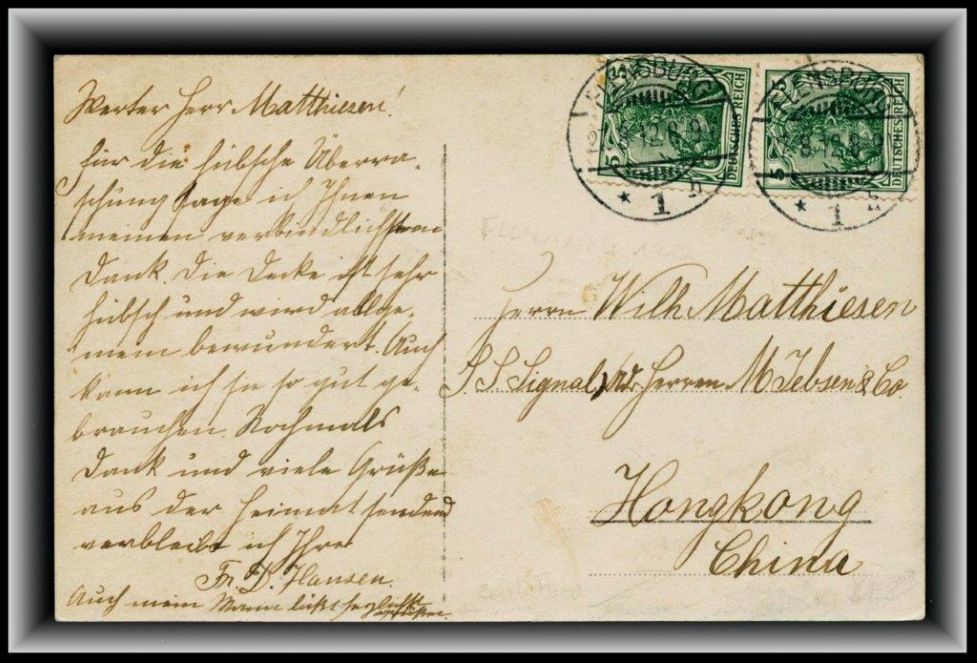 Werter Herr Matthiesen!
Für die hübsche Überra-
schung sage ich Ihnen
meinen verbindlichsten
Dank. Die Decke ist sehr
hübsch und wird allge-
mein bewundert. Auch
kann ich sie so gut ge-
brauchen. Nochmals
Dank und viele Grüße
aus der Heimat sendend
verbleibe ich Ihre
Fr. D. Hansen.
Auch mein Mann läßt herzlichst
FLENSBURG
* 1 n
DEUTSCHES REICH
5
FLENSBURG
* 1 n
DEUTSCHES REICH
5
Herrn Wilh Matthiesen
S.S. Signal, Herren M Jebsen & Co.
Hongkong
China